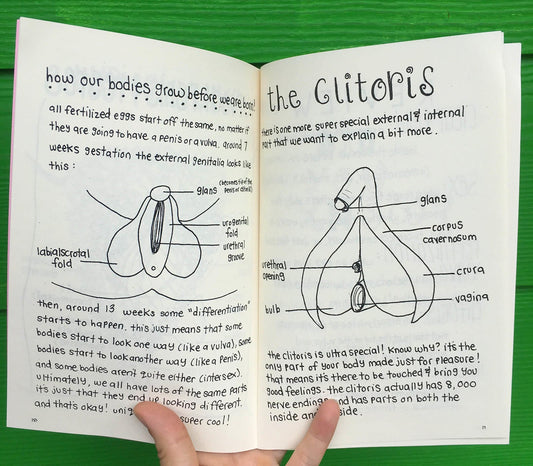 how our bodies grow before we are born!
all fertilized eggs start off the same, no matter if
they are going to have a penis or a vulva. around 7
weeks gestation the external genitalia looks like
this:
glans
urogenital
fold
urethral
groove
labialscrotal
fold
then, around 13 weeks some "differentiation"
starts to happen. this just means that some
bodies start to look one way (like a vulva), some
bodies start to look another way (like a penis),
and some bodies aren't quite either (intersex).
ultimately, we all have lots of the same parts
it's just that they end up looking different.
and that's okay! super cool!
the clitoris
there is one more super special external & internal
part that we want to explain a bit more.
glans
corpus
cavernosum
urethral
opening
crura
bulb
vagina
the clitoris is ultra special! Know why? it's the
only part of your body made just for pleasure!
that means it's there to be touched & bring you
good feelings. the clitoris actually has 8,000
nerve endings and has parts on both the
inside and
21